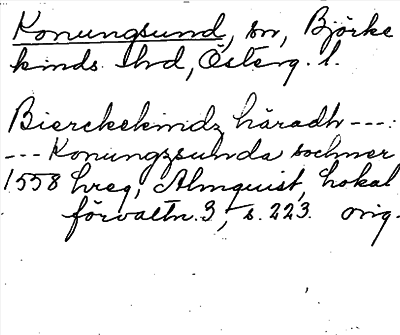 Konungsund, sn, Björke
kinds hrd, Österg. l.
Bierckekindz häradh ---:
--- Konungzsunda sochner
1558 hreg, Almquist, Lokal
förvaltn. 3, s. 223. orig.